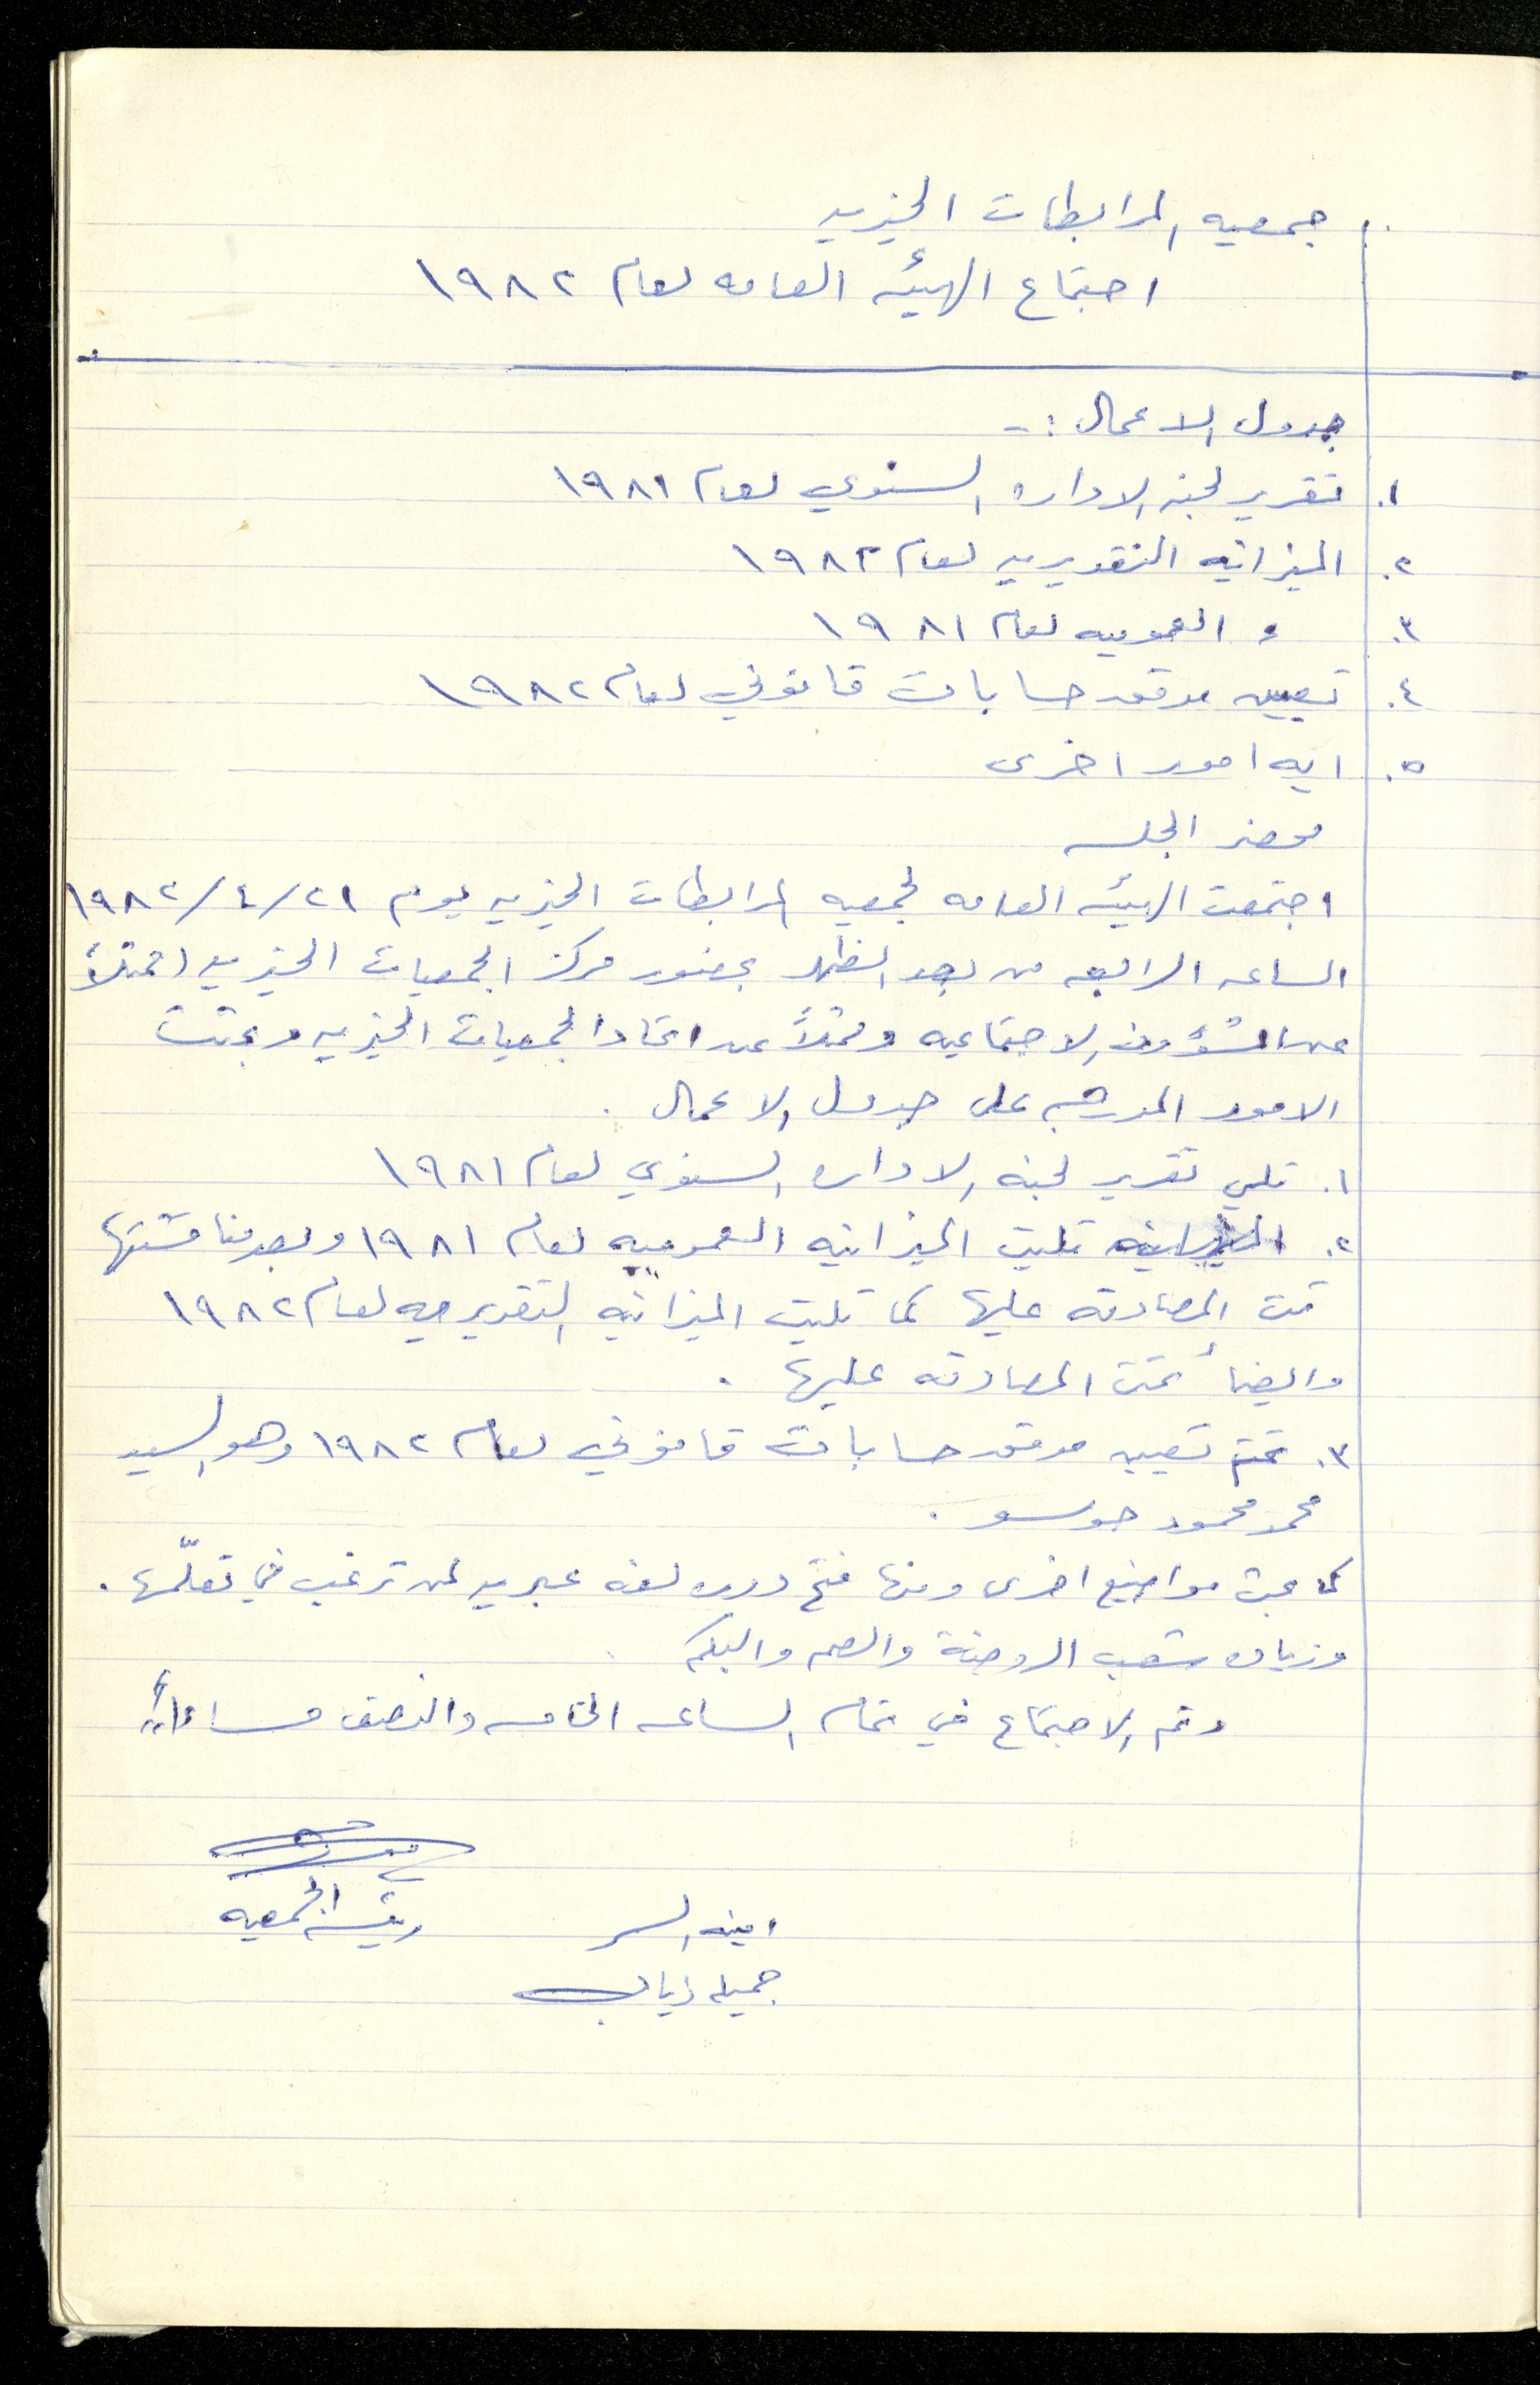 جمعيه المرابطات الخيريه
اجتماع الهيئه العامه لعام ١٩٨٢
جدول الاعمال :-
١. تقرير لجنه الاداره السنوي لعام ١٩٨١
٢. الميزانيه التقديريه لعام ١٩٨٢
٣. " العموميه لعام ١٩٨١
٤. تعيين مدقق حسابات قانوني لعام ١٩٨٢
٥. ايه امور اخرى
محضر الجلسه
اجتمعت الهيئه العامه لجمعيه المرابطات الخيريه يوم ٢١/٤/١٩٨٢
الساعه الرابعه من بعد الظهر بحضور مركز الجمعيات الخيريه (ممثلاً
عن الشؤون الاجتماعيه وممثلاً عن اتحاد الجمعيات الخيريه وبحثت
الامور المدرجه على جدول الاعمال .
١. تلي تقرير لجنه الاداره السنوي لعام ١٩٨١
٢. تليت الميزانيه العموميه لعام ١٩٨١ وبعد مناقشتها
تمت المصادقه عليها كما تليت الميزانيه التقديريه لعام ١٩٨٢
وايضاً تمت المصادقه عليها .
٣. تم تعيين مدقق حسابات قانوني لعام ١٩٨٢ وهو السيد
محمد محمود
كما بحثت مواضيع اخرى ومنها فتح دوره لغه عبريه لمن ترغب في تعلّمها .
وزياده شعب الروضة والصم والبكم
وتم الاجتماع في تمام الساعه الخامسه والنصف مساءاً
رئيسه الجمعيه
امينه السر
جميله ذياب